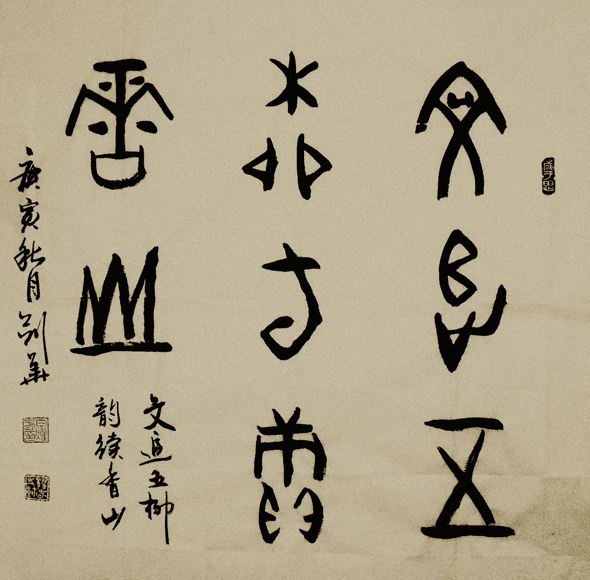 文追五
柳韵續
香山
文追五柳
韵續香山
庚寅秋月剑華